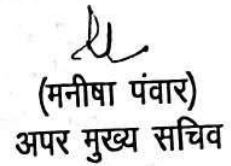 (मनीषा पंवार)
अपर मुख्य सचिव